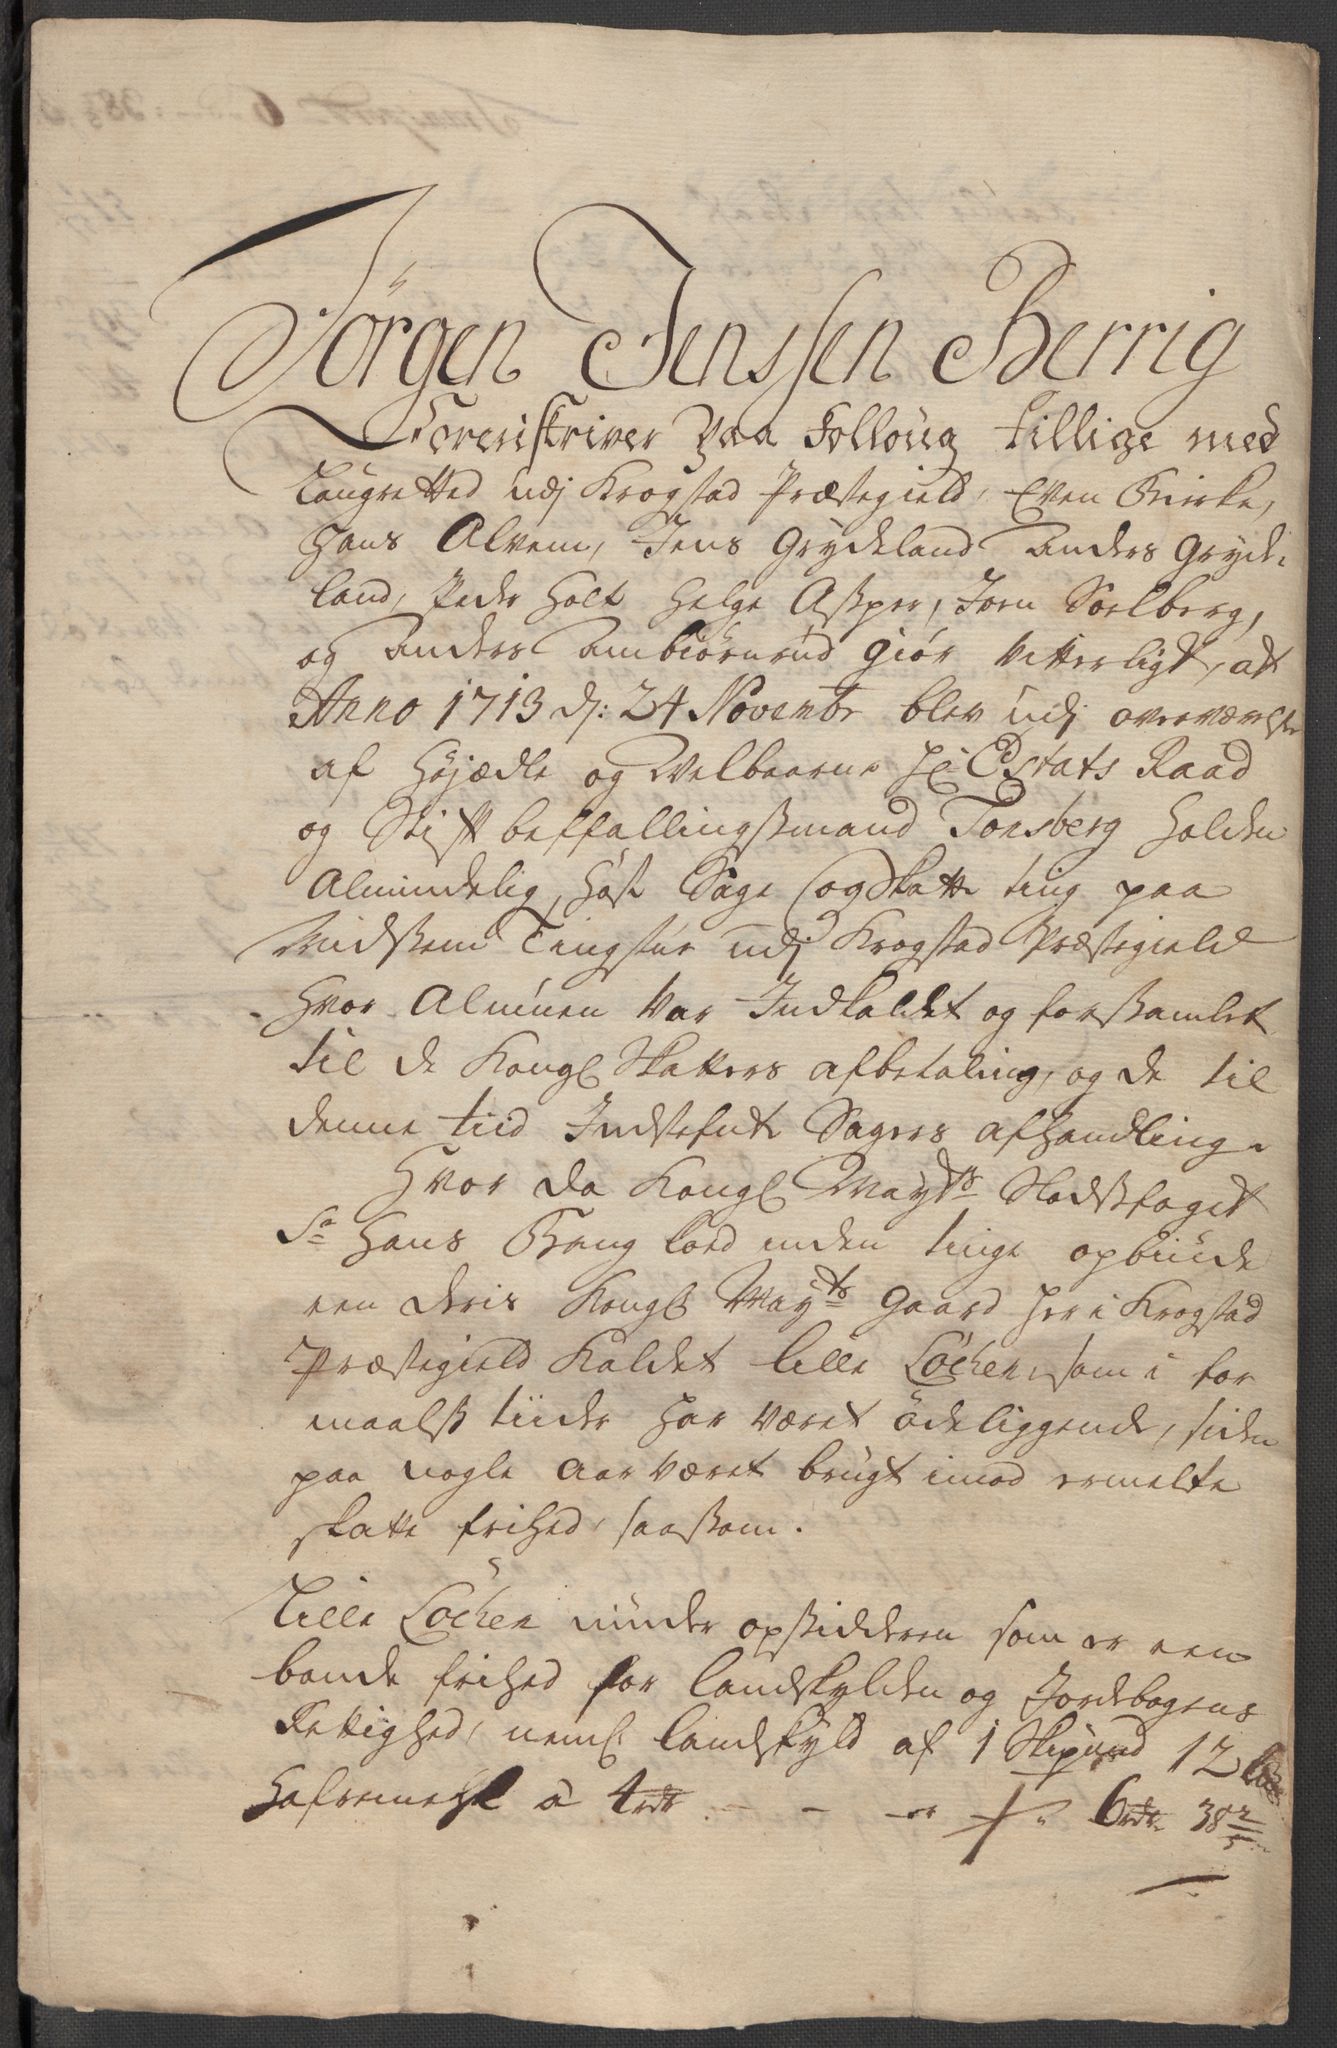 Jörgen Jenssen Berrig
Sorenskriver paa Follöug tillige med
Laugretted udj Krogstad Præstegield, Even Birke,
Hans Alvem, Jens Grydeland Anders Gryde-
land, Peder Holt Helge Assper, Joen Soelberg,
og Anders Ambiörnrud giör vitterligt, at
Anno 1713 dj: 24 Novembr blev udj overværelse
af Höjædle og Welbaarne Hr Etats Raad
og Stiftbefallingsmand Tonsberg holden
Almindelig Höst Sage og Skatte ting paa
Midssem Tingstue udj Krogstad Præstegield
hvor Almuen var Indkaldet og forssamlet
til de Kongl Skatters afbetaling, og de til
denne tiid Indstefnte Sagers afhandling.
Hvor da Kongl Mayts Slodsfoget
Sr Hans Bang loed inden tinge opbiude
een deris Kongl Mayts Gaard her i Krogstad
Præstegield kaldet lille Löchen, som i for
maalss tiider har været öde liggende, siden
paa nogle Aar været brugt imod ermelte
skatte frihed, saassom.
Lille Löchen under opssidderen som er een
bonde frihed for landskylden og Jordebogens
Rettighed, neml: landskyld af 1 Skipund 12
Hafremehl a 4 rdr - - - 6 rdr 38 2/5